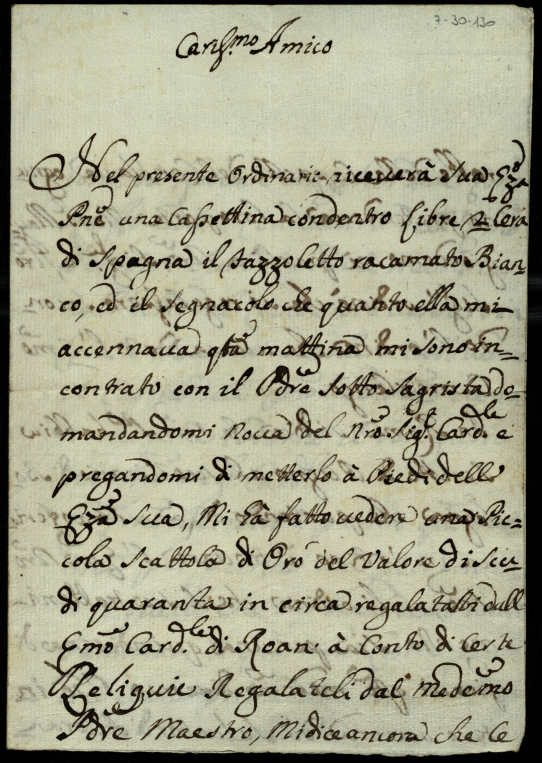 7-30-130
Cariss.mo Amico
Nel presente Ordinario riceverà Sua Ecc.za
Pne una Cassettina condentro libre 2 Cera
di Spagna il fazzoletto racamato Bian-
co, ed il segnacolo che quanto ella mi
accennava qta mattina mi sono in-
contrato con il Pdre sotto sagrista do-
mandandomi nova del nro Sig.r Card.le e
pregandomi di metterlo à Piedi dell
Ecza Sua, Mi hà fatto vedere una Pic-
cola Scattola di Oro del valore di Scu-
di quaranta in circa regalatalli dall
Emo Card.le di Roan à Conto di Certe
Reliquie Regalateli dal medemo
Pdre Maestro, Mi dice ancora che le